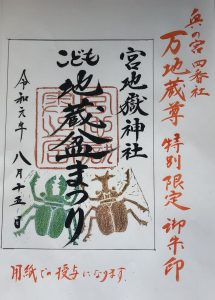 奥の宮 四番社
万地蔵尊 特別限定 御朱印
宮地嶽神社
こども
地蔵盆まつり
令和元年 八月十五日
用紙での授与になります